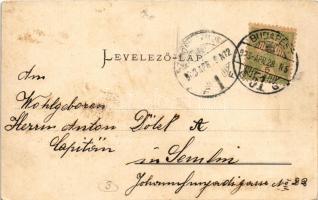 LEVELEZŐ-LAP
BUDAPEST
An
Wohlgeboren
Herrn Anton Dölek A
Capitän
in Semlin
Johann Hunyadigasse № 22
5